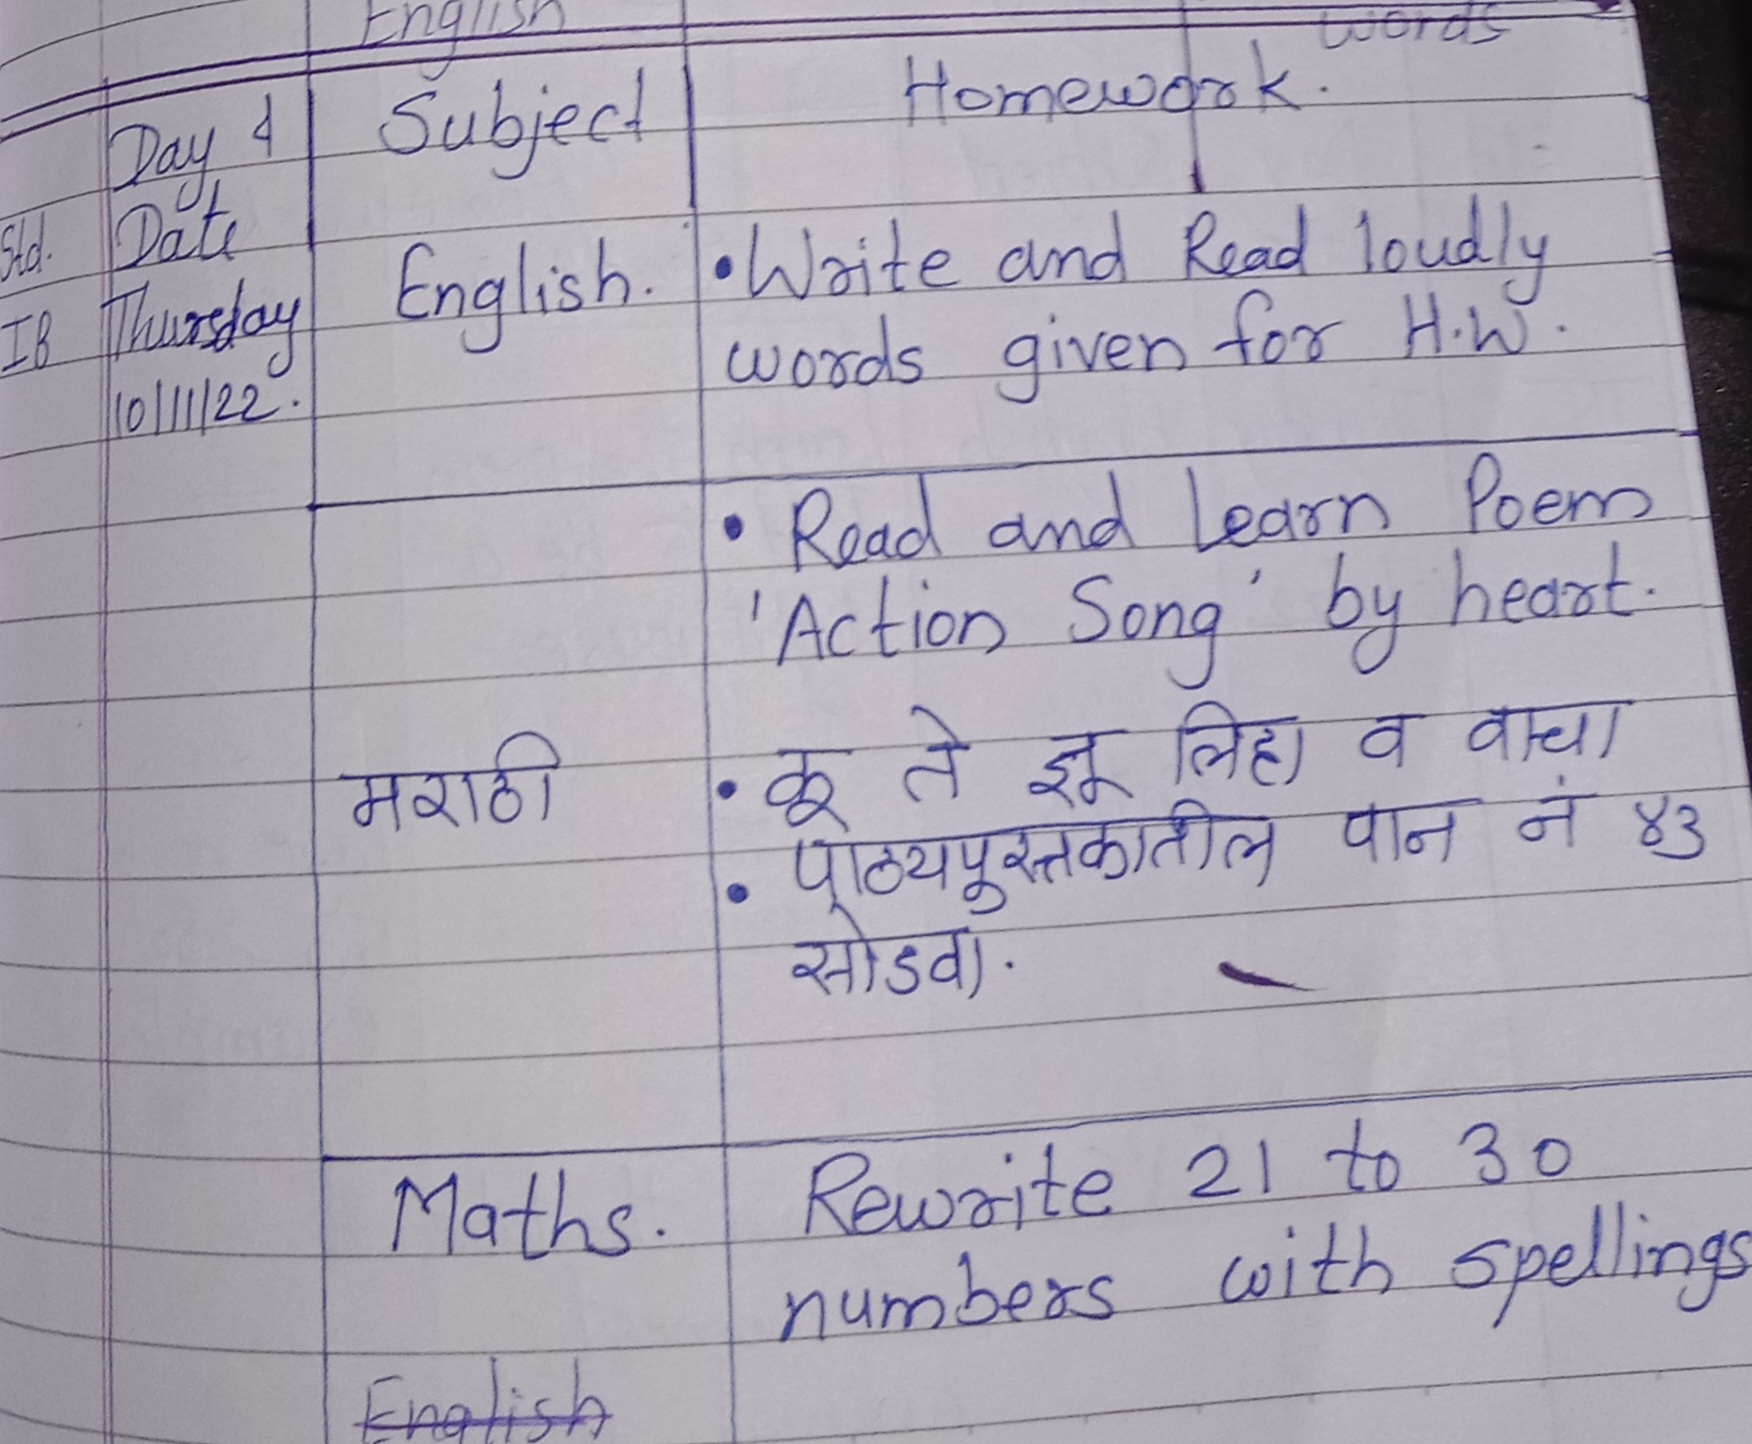 English
words
Day & Subject Homework.
Std. Date
IB Thursday English. • Write and Read loudly
10/11/22. words given for H.W.
• Read and Learn Poem
'Action Song' by heart.
मराठी • कू ते ज्ञू लिहा व वाचा
• पाठ्यपुस्तकातील पान नं ४३
सोडवा.
Maths. Rewrite 21 to 30
numbers with spellings
English